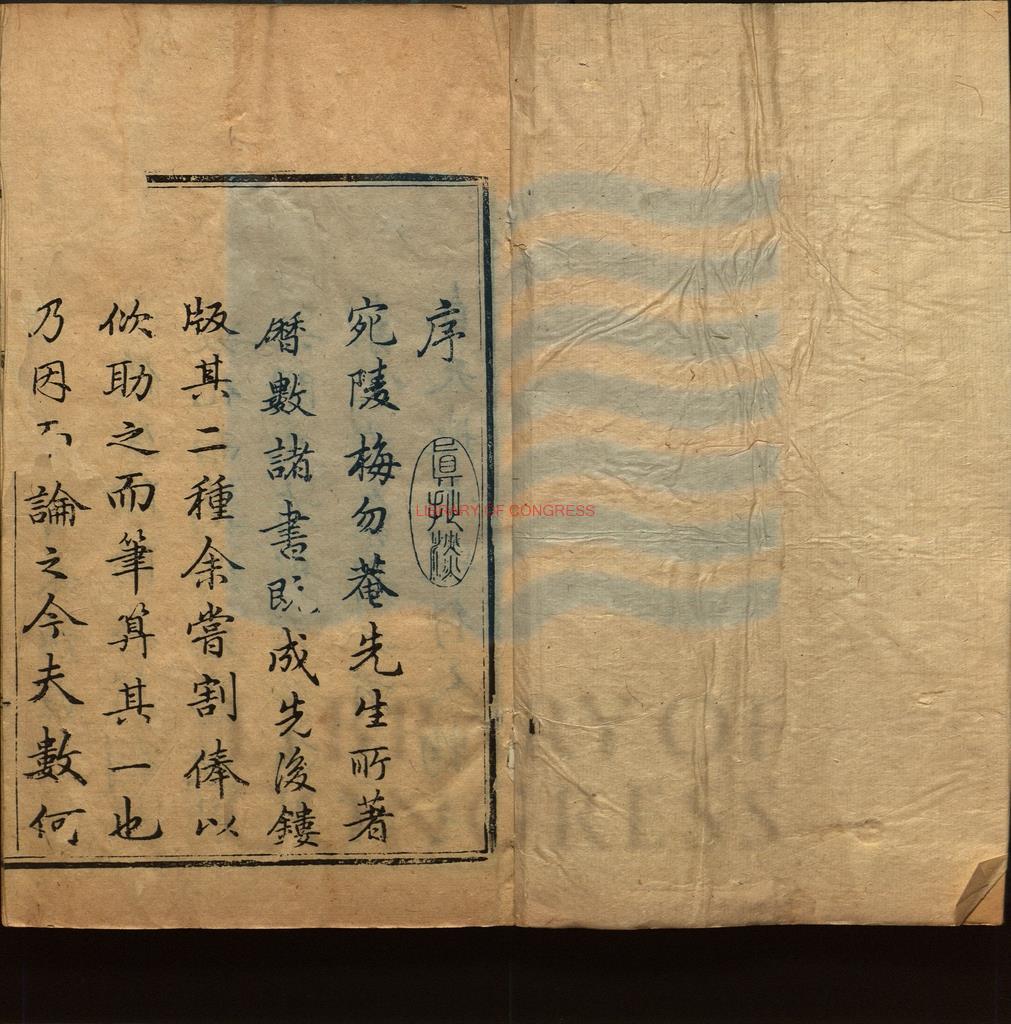 序
宛陵梅勿菴先生所著
曆數諸書既成先後鏤
版其二種余嘗割俸以
佽助之而筆算其一也
乃因而論之今夫數何
LIBRARY OF CONGRESS